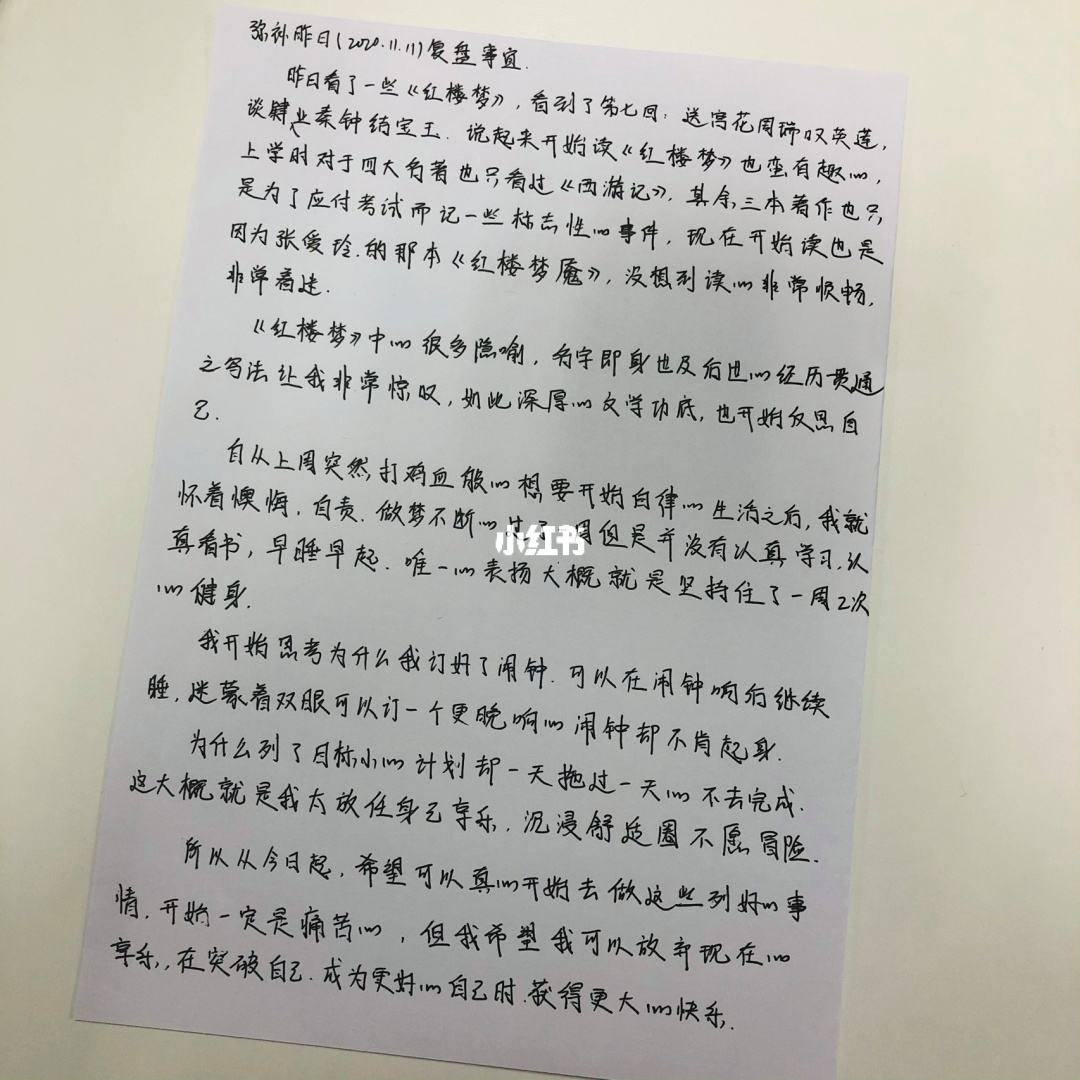 弥补昨日(2020.11.11)复盘事宜.
昨日看了一些《红楼梦》,看到了第七回:送宫花周瑞叹英莲,
谈肄业秦钟结宝玉.说起来开始读《红楼梦》也蛮有趣的,
上学时对于四大名著也只看过《西游记》,其余三本著作也只
是为了应付考试而记一些标志性的事件,现在开始读也是
因为张爱玲.的那本《红楼梦魇》,没想到读的非常顺畅,
非常着迷.
《红楼梦》中的很多隐喻,名字即身世及后世的经历贯通
之写法让我非常惊叹,如此深厚的文学功底,也开始反思自
己.
自从上周突然打鸡血般的想要开始自律的生活之后,我就
怀着懊悔,自责.做梦不断的过了一周但是并没有认真学习,认
真看书,早睡早起.唯一的表扬大概就是坚持住了一周2次
的健身.
我开始思考为什么我订好了闹钟.可以在闹钟响后继续
睡,迷蒙着双眼可以订一个更晚响的闹钟却不肯起身.
为什么列了目标小的计划却一天拖过一天的不去完成.
这大概就是我太放任自己享乐,沉浸舒适圈不愿冒险.
所以从今日起,希望可以真的开始去做这些列好的事
情.开始一定是痛苦的,但我希望我可以放弃现在的
享乐,在突破自己.成为更好的自己时.获得更大的快乐.
小红书